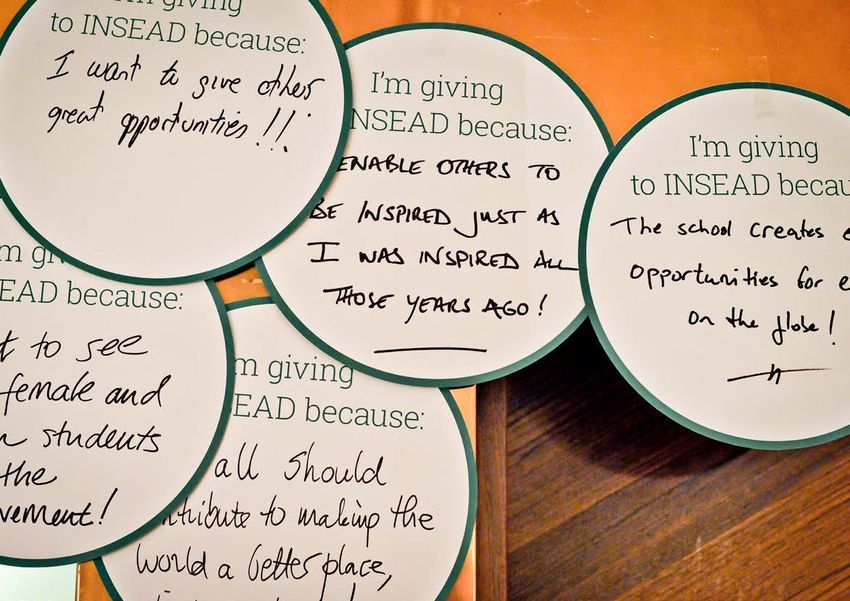 I'm giving
to INSEAD because:
I want to give others
great opportunities!!!
I'm giving
INSEAD because:
ENABLE OTHERS TO
BE INSPIRED JUST AS
I WAS INSPIRED ALL
THOSE YEARS AGO!
I'm giving
to INSEAD becau
The school creates
opportunities for
on the globe!
EAD because:
to see
female and
students
the
vement!
m giving
EAD because:
all should
tribute to making the
world a better place,